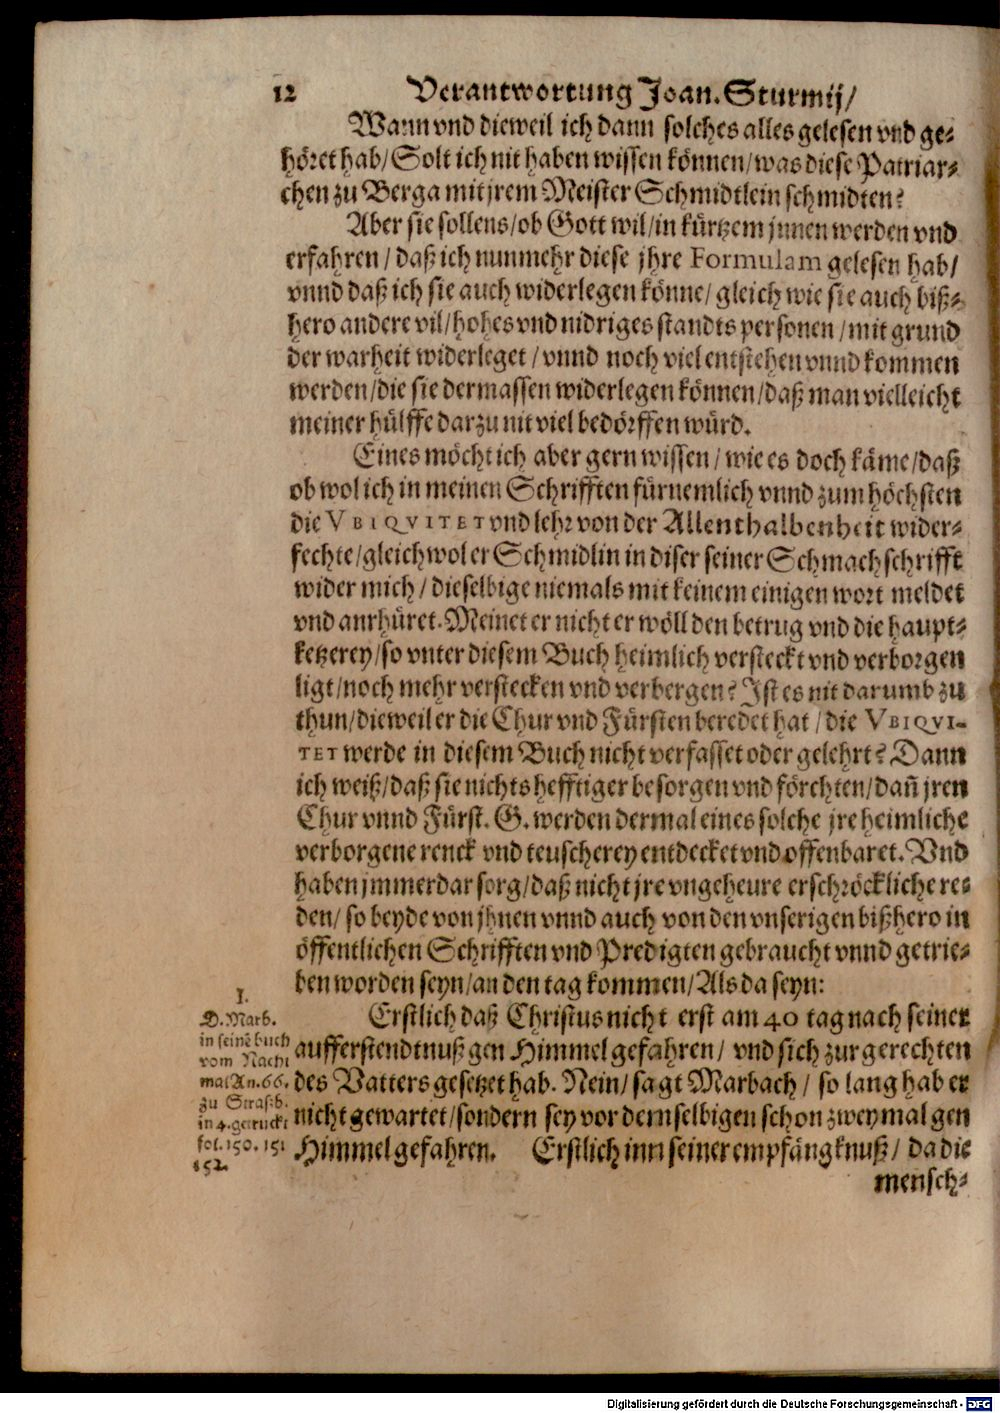 12 Verantwortung Joan. Sturmij/
Wann vnd dieweil ich dann solches alles gelesen vnd ge-
höret hab/ Solt ich nit haben wissen können/ was diese Patriar-
chen zu Berga mit jrem Meister Schmidtlein schmidten?
Aber sie sollens/ ob Gott wil/ in kürtzem jnnen werden vnd
erfahren/ daß ich nunmehr diese jhre Formulam gelesen hab/
vnnd daß ich sie auch widerlegen könne/ gleich wie sie auch biß-
hero andere vil/ hohes vnd nidriges standts personen/ mit grund
der warheit widerleget/ vnnd noch viel entstehen vnnd kommen
werden/ die sie dermassen widerlegen können/ daß man vielleicht
meiner hülffe darzu nit viel bedörffen würd.
Eines möcht ich aber gern wissen/ wie es doch käme/ daß
ob wol ich in meinen Schrifften fürnemlich vnnd zum höchsten
die VBIQVITET vnd lehr von der Allenthalbenheit wider-
fechte/ gleichwol er Schmidlin in diser seiner Schmachschrifft
wider mich/ dieselbige niemals mit keinem einigen wort meldet
vnd anrhüret. Meinet er nicht er wöll den betrug vnd die haupt-
ketzerey/ so vnter diesem Buch heimlich versteckt vnd verborgen
ligt/ noch mehr verstecken vnd verbergen? Ist es nit darumb zu
thun/ dieweil er die Chur vnd Fürsten beredet hat/ die VBIQVI-
TET werde in diesem Buch nicht verfasset oder gelehrt? Dann
ich weiß/ daß sie nichts hefftiger besorgen vnd förchten/ dañ jren
Chur vnnd Fürst. G. werden dermal eines solche jre heimliche
verborgene renck vnd teuscherey entdecket vnd offenbaret. Vnd
haben jmmerdar sorg/ daß nicht jre vngeheure erschröckliche re-
den/ so beyde von jhnen vnnd auch von den vnserigen bißhero in
öffentlichen Schrifften vnd Predigten gebraucht vnnd getrie-
ben worden seyn/ an den tag kommen/ Als da seyn:
Erstlich daß Christus nicht erst am 40 tag nach seiner
aufferstendtnuß gen Himmel gefahren/ vnd sich zur gerechten
des Vatters gesetzet hab. Nein/ sagt Marbach/ so lang hab er
nicht gewartet/ sondern sey vor demselbigen schon zweymal gen
Himmel gefahren. Erstlich inn seiner empfängknuß/ da die
mensch-
I.
D. Marb.
in seinē buch
vom Nacht
mal An. 66.
zu Straßb.
in 4. getruckt
fol. 150. 151
152.
Digitalisierung gefördert durch die Deutsche Forschungsgemeinschaft - DFG